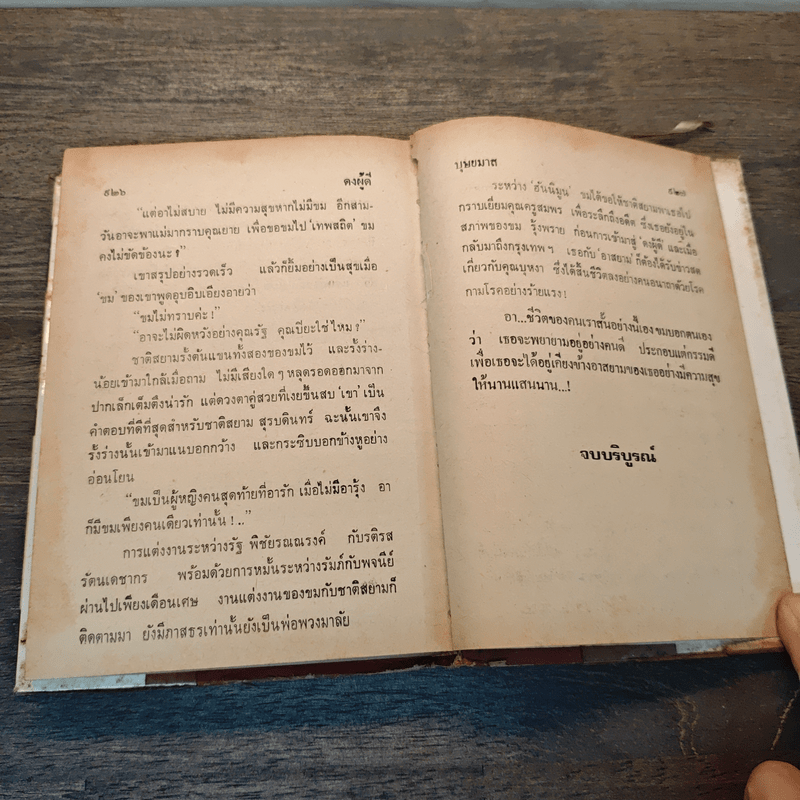 ๕๒๖ ดงผู้ดี
“แต่อาไม่สบาย ไม่มีความสุขหากไม่มีขม อีกสาม-
วันอาจะพาแม่มากราบคุณยาย เพื่อขอขมไป ‘เทพสถิต’ ขม
คงไม่ขัดข้องนะ?”
เขาสรุปอย่างรวดเร็ว แล้วก็ยิ้มอย่างเป็นสุขเมื่อ
‘ขม’ ของเขาพูดอุบอิบเอียงอายว่า
“ขมไม่ทราบค่ะ!”
“อาจะไม่ผิดหวังอย่างคุณรัฐ คุณเปียะใช่ไหม?”
ชาติสยามรั้งต้นแขนทั้งสองของขมไว้ และรั้งร่าง-
น้อยเข้ามาใกล้เมื่อถาม ไม่มีเสียงใดๆ หลุดรอดออกมาจาก
ปากเล็กเต็มตึงน่ารัก แต่ดวงตาคู่สวยที่เงยขึ้นสบ ‘เขา’ เป็น
คำตอบที่ดีที่สุดสำหรับชาติสยาม สุรบดินทร์ ฉะนั้นเขาจึง
รั้งร่างนั้นเข้ามาแนบอกกว้าง และกระซิบบอกข้างหูอย่าง
อ่อนโยน
“ขมเป็นผู้หญิงคนสุดท้ายที่อารัก เมื่อไม่มีอารุ้ง อา
ก็มีขมเพียงคนเดียวเท่านั้น!..”
การแต่งงานระหว่างรัฐ พิชัยรณณรงค์ กับรติรส
รัตนเดชากร พร้อมด้วยการหมั้นระหว่างรัมภ์กับพจนีย์
ผ่านไปเพียงเดือนเศษ งานแต่งงานของขมกับชาติสยามก็
ติดตามมา ยังมีภาสธรเท่านั้นยังเป็นพ่อพวงมาลัย
บุษยมาส ๕๒๗
ระหว่าง ‘ฮันนีมูน’ ขมได้ขอให้ชาติสยามพาเธอไป
กราบเยี่ยมคุณครูสมพร เพื่อระลึกถึงอดีต ซึ่งเธอยังอยู่ใน
สภาพของขม รุ้งพราย ก่อนการเข้ามาสู่ ‘ดงผู้ดี’ และเมื่อ
กลับมาถึงกรุงเทพฯ เธอกับ ‘อาสยาม’ ก็ต้องได้รับข่าวสด
เกี่ยวกับคุณบุหงา ซึ่งได้สิ้นชีวิตลงอย่างคนอนาถาด้วยโรค
กามโรคอย่างร้ายแรง!
อา...ชีวิตของคนเราสั้นอย่างนี้เอง ขมบอกตนเอง
ว่า เธอจะพยายามอยู่อย่างคนดี ประกอบแต่กรรมดี
เพื่อเธอจะได้อยู่เคียงข้างอาสยามของเธออย่างมีความสุข
ให้นานแสนนาน...!
จบบริบูรณ์